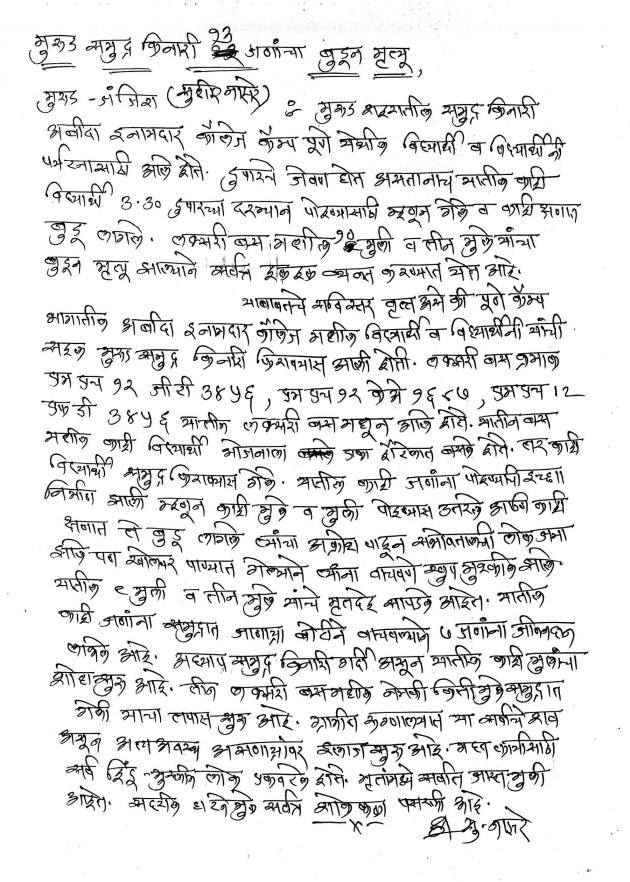 मुरुड समुद्र किनारी १३ जणांचा बुडून मृत्यू,
मुरुड - जंजिरा (सुधीर नाझरे) ः मुरुड शहरातील समुद्र किनारी
अबीदा इनामदार कॉलेज कॅम्प पुणे येथील विद्यार्थी व विद्यार्थीनी
पर्यटनासाठी आले होते. दुपारचे जेवण होत असतानाच यातील काही
विद्यार्थी ३.३० दुपारच्या दरम्यान पोहण्यासाठी म्हणून गेले व काही क्षणात
बुडू लागले. लक्सरी बस मधील १० मुली व तीन मुले यांचा
बुडून मृत्यू झाल्याने सर्वत्र हळहळ व्यक्त करण्यात येत आहे.
याबाबतचे सविस्तर वृत्त असे की पुणे कॅम्प
भागातील अबीदा इनामदार कॉलेज मधील विद्यार्थी व विद्यार्थीनी यांची
सहल मुरुड समुद्र किनारी फिरावयास आली होती. लक्सरी बस क्रमांक
एम एच १२ जीटी ३४५६, एम एच १२ केजे १६८७, एम एच 12
एफ डी ३४५६ यातील लक्सरी बस मधून आले होते. यातील बस
मधील काही विद्यार्थी भोजनाला एका हॉटेलात बसले होते. तर काही
विद्यार्थी समुद्र फिरावयास गेले. यातील काही जणांना पोहण्याची इच्छा
निर्माण झाली म्हणून काही मुले व मुली पोहण्यास उतरले आणि काही
क्षणात ते बुडू लागले त्यांचा आक्रोश पाहून सभोवतालची लोक जमा
झाले पण खोलवर पाण्यात गेल्याने त्यांना वाचवणे खूप मुश्कील झाले.
यातील ९ मुली व तीन मुले यांचे मृतदेह सापडले आहेत. यातील
काही जणांना समुद्रात जाणाऱ्या बोटीने वाचवल्याने ७ जणांना जीवदान
लाभले आहे. अद्याप समुद्र किनारी गर्दी असून यातील काही मुलांचा
शोध सुरु आहे. तीन लक्सरी बस मधील नेमकी किती मुले समुद्रात
गेली याचा तपास सुरु आहे. ग्रामीण रुग्णालयात या सर्वांचे शव
असून अत्यवस्थ असणाऱ्यांवर इलाज सुरु आहे. मदत कार्यासाठी
सर्व हिंदू - मुस्लीम लोक एकवटले होते. मृतांमध्ये सर्वात जास्त मुली
आहेत. सदरील घटनेमुळे सर्वत्र शोककळा पसरली आहे.
x
सु. नाझरे